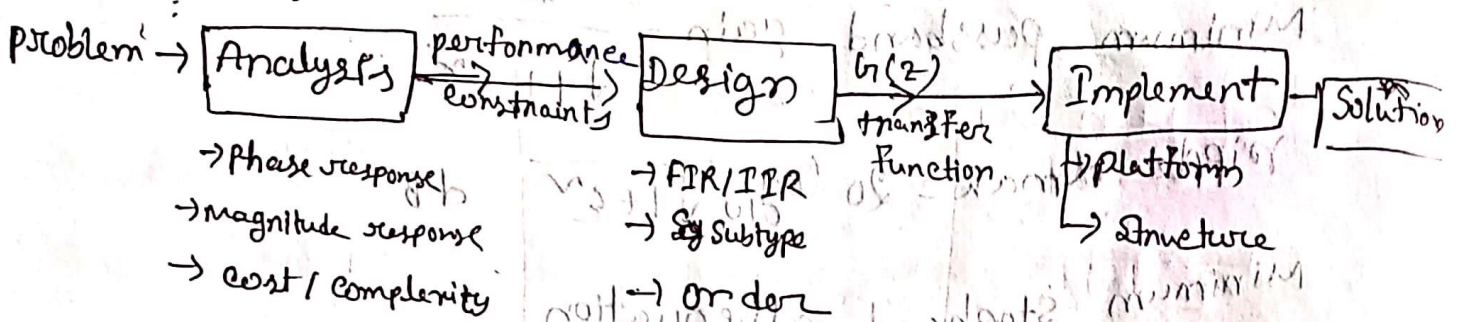 Problem → Analysis performance constraints Design G(z) transfer Function. Implement Solution
→ Phase response
→ Magnitude response
→ Cost / Complexity
→ FIR/IIR
→ Subtype
→ Order
→ platform
→ Structure